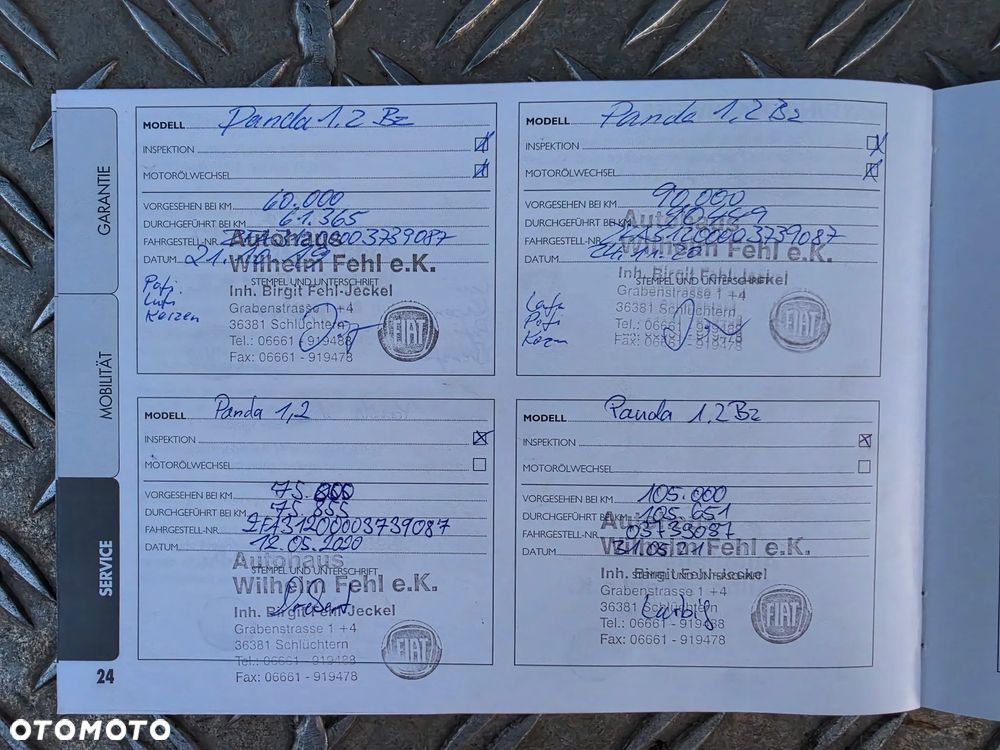 GARANTIE
MOBILITÄT
SERVICE
MODELL Panda 1,2 Bz
INSPEKTION
MOTORÖLWECHSEL
VORGESEHEN BEI KM 60.000
DURCHGEFÜHRT BEI KM 61.365
FAHRGESTELL-NR. 0003739087
DATUM 21.10.19
Autohaus
Wilhelm Fehl e.K.
STEMPEL UND UNTERSCHRIFT
Inh. Birgit Fehl-Jeckel
Grabenstrasse 1 +4
36381 Schlüchtern
Tel.: 06661 - 919488
Fax: 06661 - 919478
FIAT
MODELL Panda 1,2 Bz
INSPEKTION
MOTORÖLWECHSEL
VORGESEHEN BEI KM 90.000
DURCHGEFÜHRT BEI KM
FAHRGESTELL-NR. 31200003739087
DATUM 11.20
Autohaus
Wilhelm Fehl e.K.
STEMPEL UND UNTERSCHRIFT
Inh. Birgit Fehl-Jeckel
Grabenstrasse 1 +4
36381 Schlüchtern
Tel.: 06661 - 919488
Fax: 06661 - 919478
FIAT
MODELL Panda 1,2
INSPEKTION
MOTORÖLWECHSEL
VORGESEHEN BEI KM 75.000
DURCHGEFÜHRT BEI KM 75.855
FAHRGESTELL-NR. ZFA3120003739087
DATUM 12.05.2020
Autohaus
STEMPEL UND UNTERSCHRIFT
Wilhelm Fehl e.K.
Inh. Birgit Fehl-Jeckel
Grabenstrasse 1 +4
36381 Schlüchtern
Tel.: 06661 - 919488
Fax: 06661 - 919478
FIAT
MODELL Panda 1,2 Bz
INSPEKTION
MOTORÖLWECHSEL
VORGESEHEN BEI KM 105.000
DURCHGEFÜHRT BEI KM 105.651
FAHRGESTELL-NR. 03739087
DATUM 31.05.21
Autohaus
Wilhelm Fehl e.K.
STEMPEL UND UNTERSCHRIFT
Inh. Birgit Fehl-Jeckel
Grabenstrasse 1 +4
36381 Schlüchtern
Tel.: 06661 - 919488
Fax: 06661 - 919478
FIAT
24
OTOMOTO